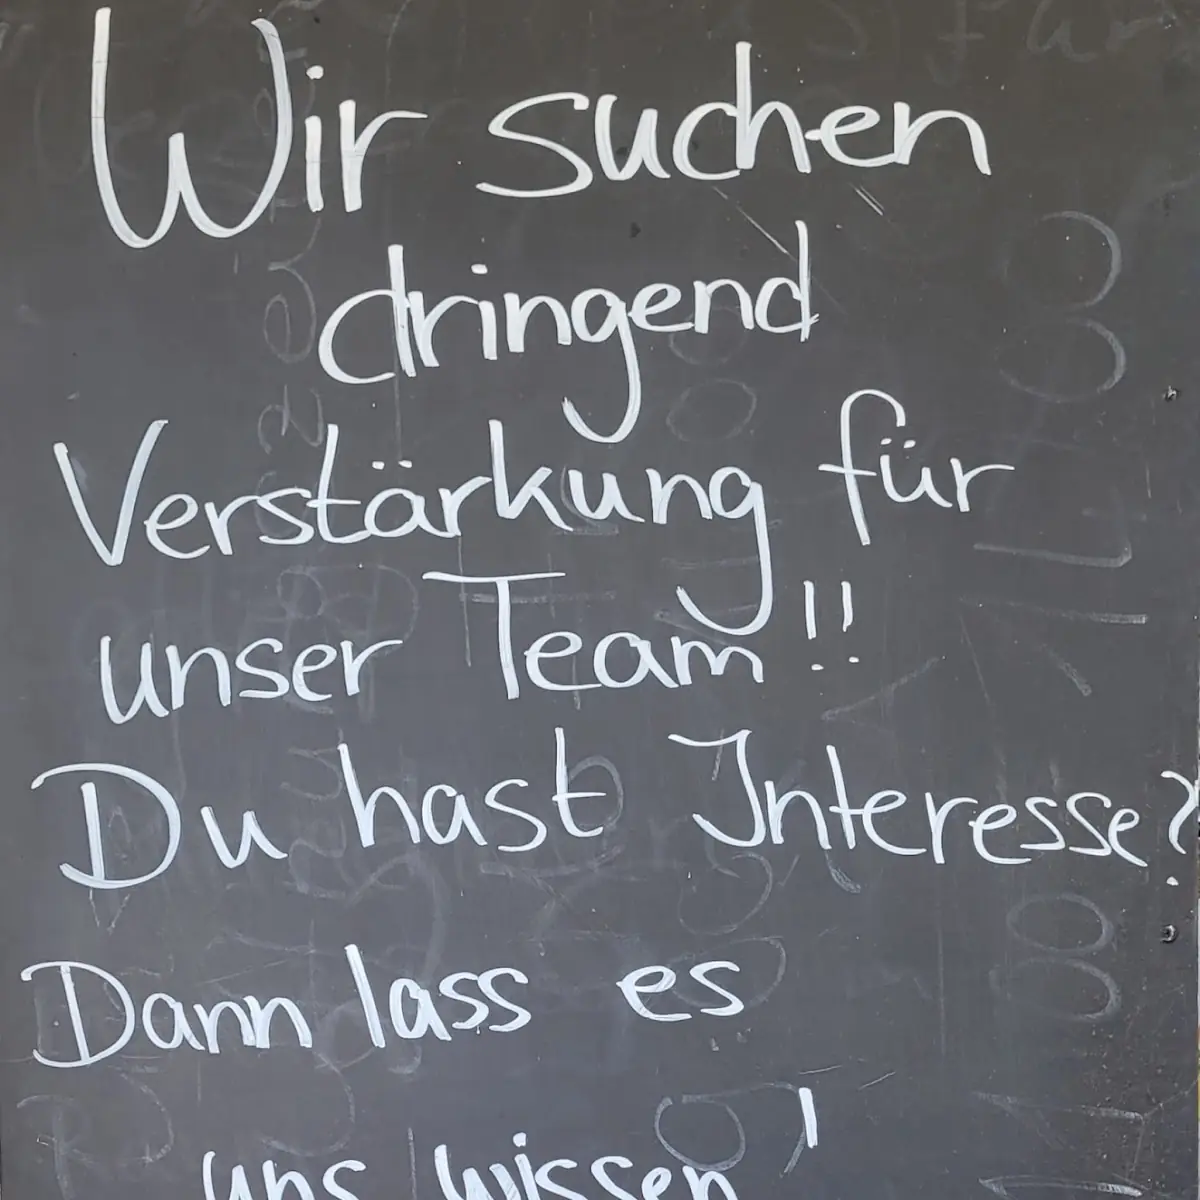 Wir suchen
dringend
Verstärkung für
unser Team!!
Du hast Interesse?
Dann lass es
uns wissen!